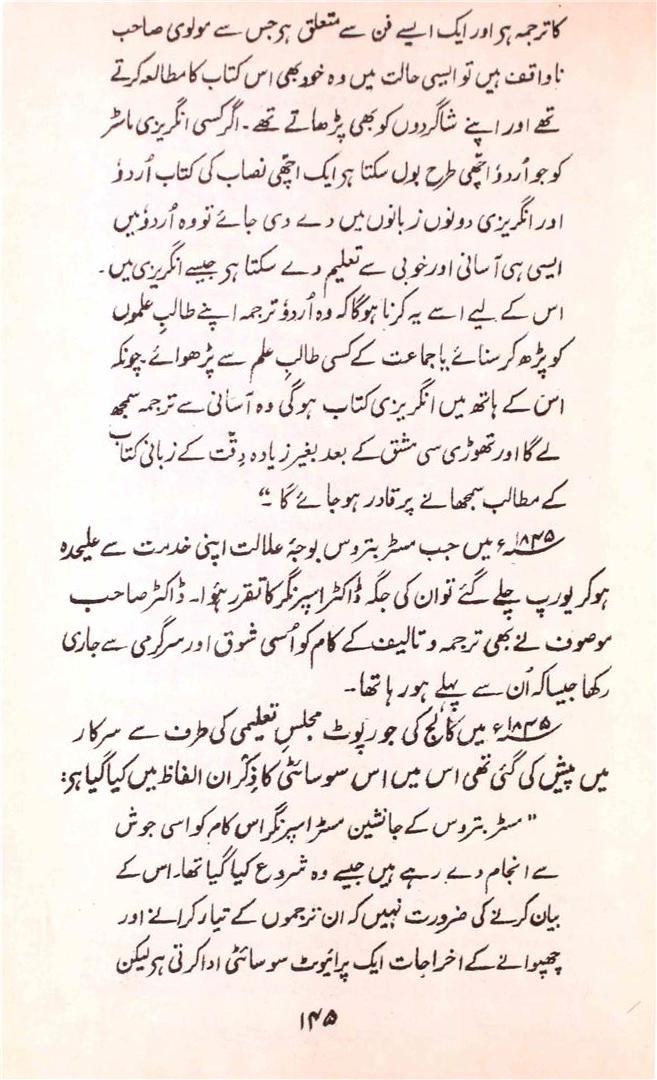 کا ترجمہ ہر اور ایک ایسے فن سے متعلق ہر جس سے مولوی صاحب
ناواقف ہیں تو ایسی حالت میں وہ خود بھی اس کتاب کا مطالعہ کرتے
تھے اور اپنے شاگردوں کو بھی پڑھاتے تھے۔ اگر کسی انگریزی ماسٹر
کو جو اُردوٗ اچھّی طرح بول سکتا ہر ایک اچھّی نصاب کی کتاب اُردوٗ
اور انگریزی دونوں زبانوں میں دے دی جائے تو وہ اُردوٗ میں
ایسی ہی آسانی اور خوبی سے تعلیم دے سکتا ہر جیسے انگریزی میں۔
اس کے لیے اسے یہ کرنا ہوگا کہ وہ اُردوٗ ترجمہ اپنے طالبِ علموں
کو پڑھ کر سنائے یا جماعت کے کسی طالبِ علم سے پڑھوائے۔ چونکہ
اس کے ہاتھ میں انگریزی کتاب ہوگی وہ آسانی سے ترجمہ سمجھ
لے گا اور تھوڑی سی مشق کے بعد بغیر زیادہ دِقّت کے زبانی کتاب
کے مطالب سمجھانے پر قادر ہو جائے گا ۔“
۱۸۴۵ء میں جب مسٹر بتروس بوجۂ علالت اپنی خدمت سے علیحدہ
ہو کر یورپ چلے گئے تو ان کی جگہ ڈاکٹر اسپرنگر کا تقرر ہُوا۔ ڈاکٹر صاحب
موصوف نے بھی ترجمہ و تالیف کے کام کو اُسی شوق اور سرگرمی سے جاری
رکھا جیسا کہ اُن سے پہلے ہو رہا تھا۔
۱۸۴۵ء میں کالج کی جو رپوٹ مجلسِ تعلیمی کی طرف سے سرکار
میں پیش کی گئی تھی اس میں اس سوسائٹی کا ذِکر ان الفاظ میں کیا گیا ہر:
”مسٹر بتروس کے جانشین مسٹر اسپرنگر اس کام کو اسی جوش
سے انجام دے رہے ہیں جیسے وہ شروع کیا گیا تھا۔ اس کے
بیان کرنے کی ضرورت نہیں کہ ان ترجموں کے تیار کرانے اور
چھپوانے کے اخراجات ایک پرائیوٹ سوسائٹی ادا کرتی ہر لیکن
۱۴۵